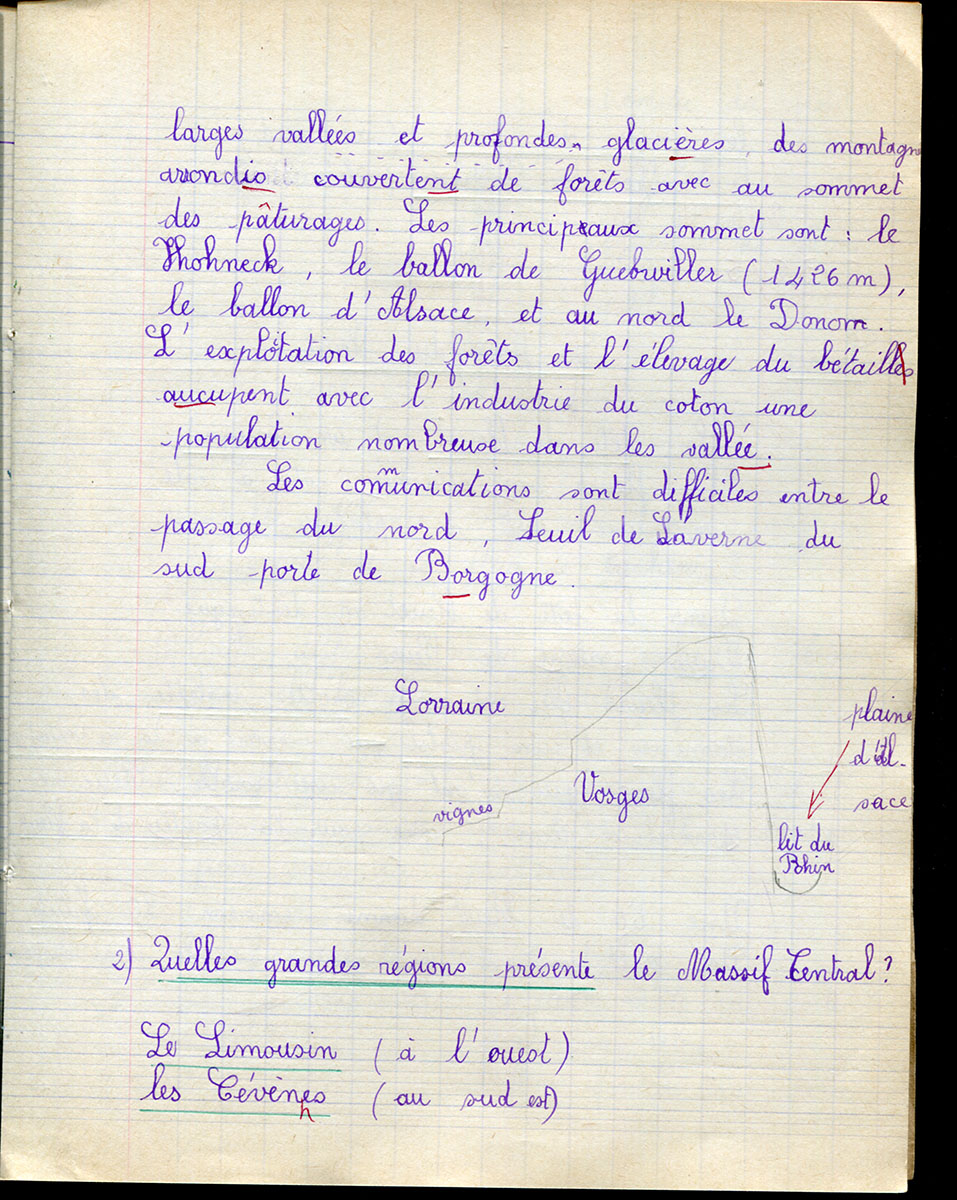 larges vallées et profondes, glacières, des montagn
arondis couvertent de forêts avec au sommet
des pâturages. Les principeaux sommet sont : le
Hhohneck, le ballon de Guebwiller (1426 m),
le ballon d'Alsace, et au nord le Donom.
L'explotation des forêts et l'élevage du bétaills
aucupent avec l'industrie du coton une
population nombreuse dans les vallée.
Les communications sont difficiles entre le
passage du nord, Seuil de Saverne du
sud porte de Borgogne.
Lorraine
plaine
d'Al-
sace
Vosges
vignes
lit du
Rhin
2) Quelles grandes régions présente le Massif Central ?
Le Limousin (à l'ouest)
les Cévènes (au sud est)
n